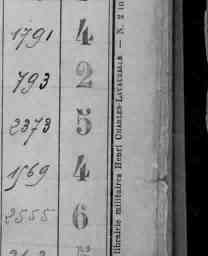 1791 4
793 2
2373 5
1569 4
2555 6
librairie militaires Henri CHARLES-LAVAUZELLE — N. 2 in